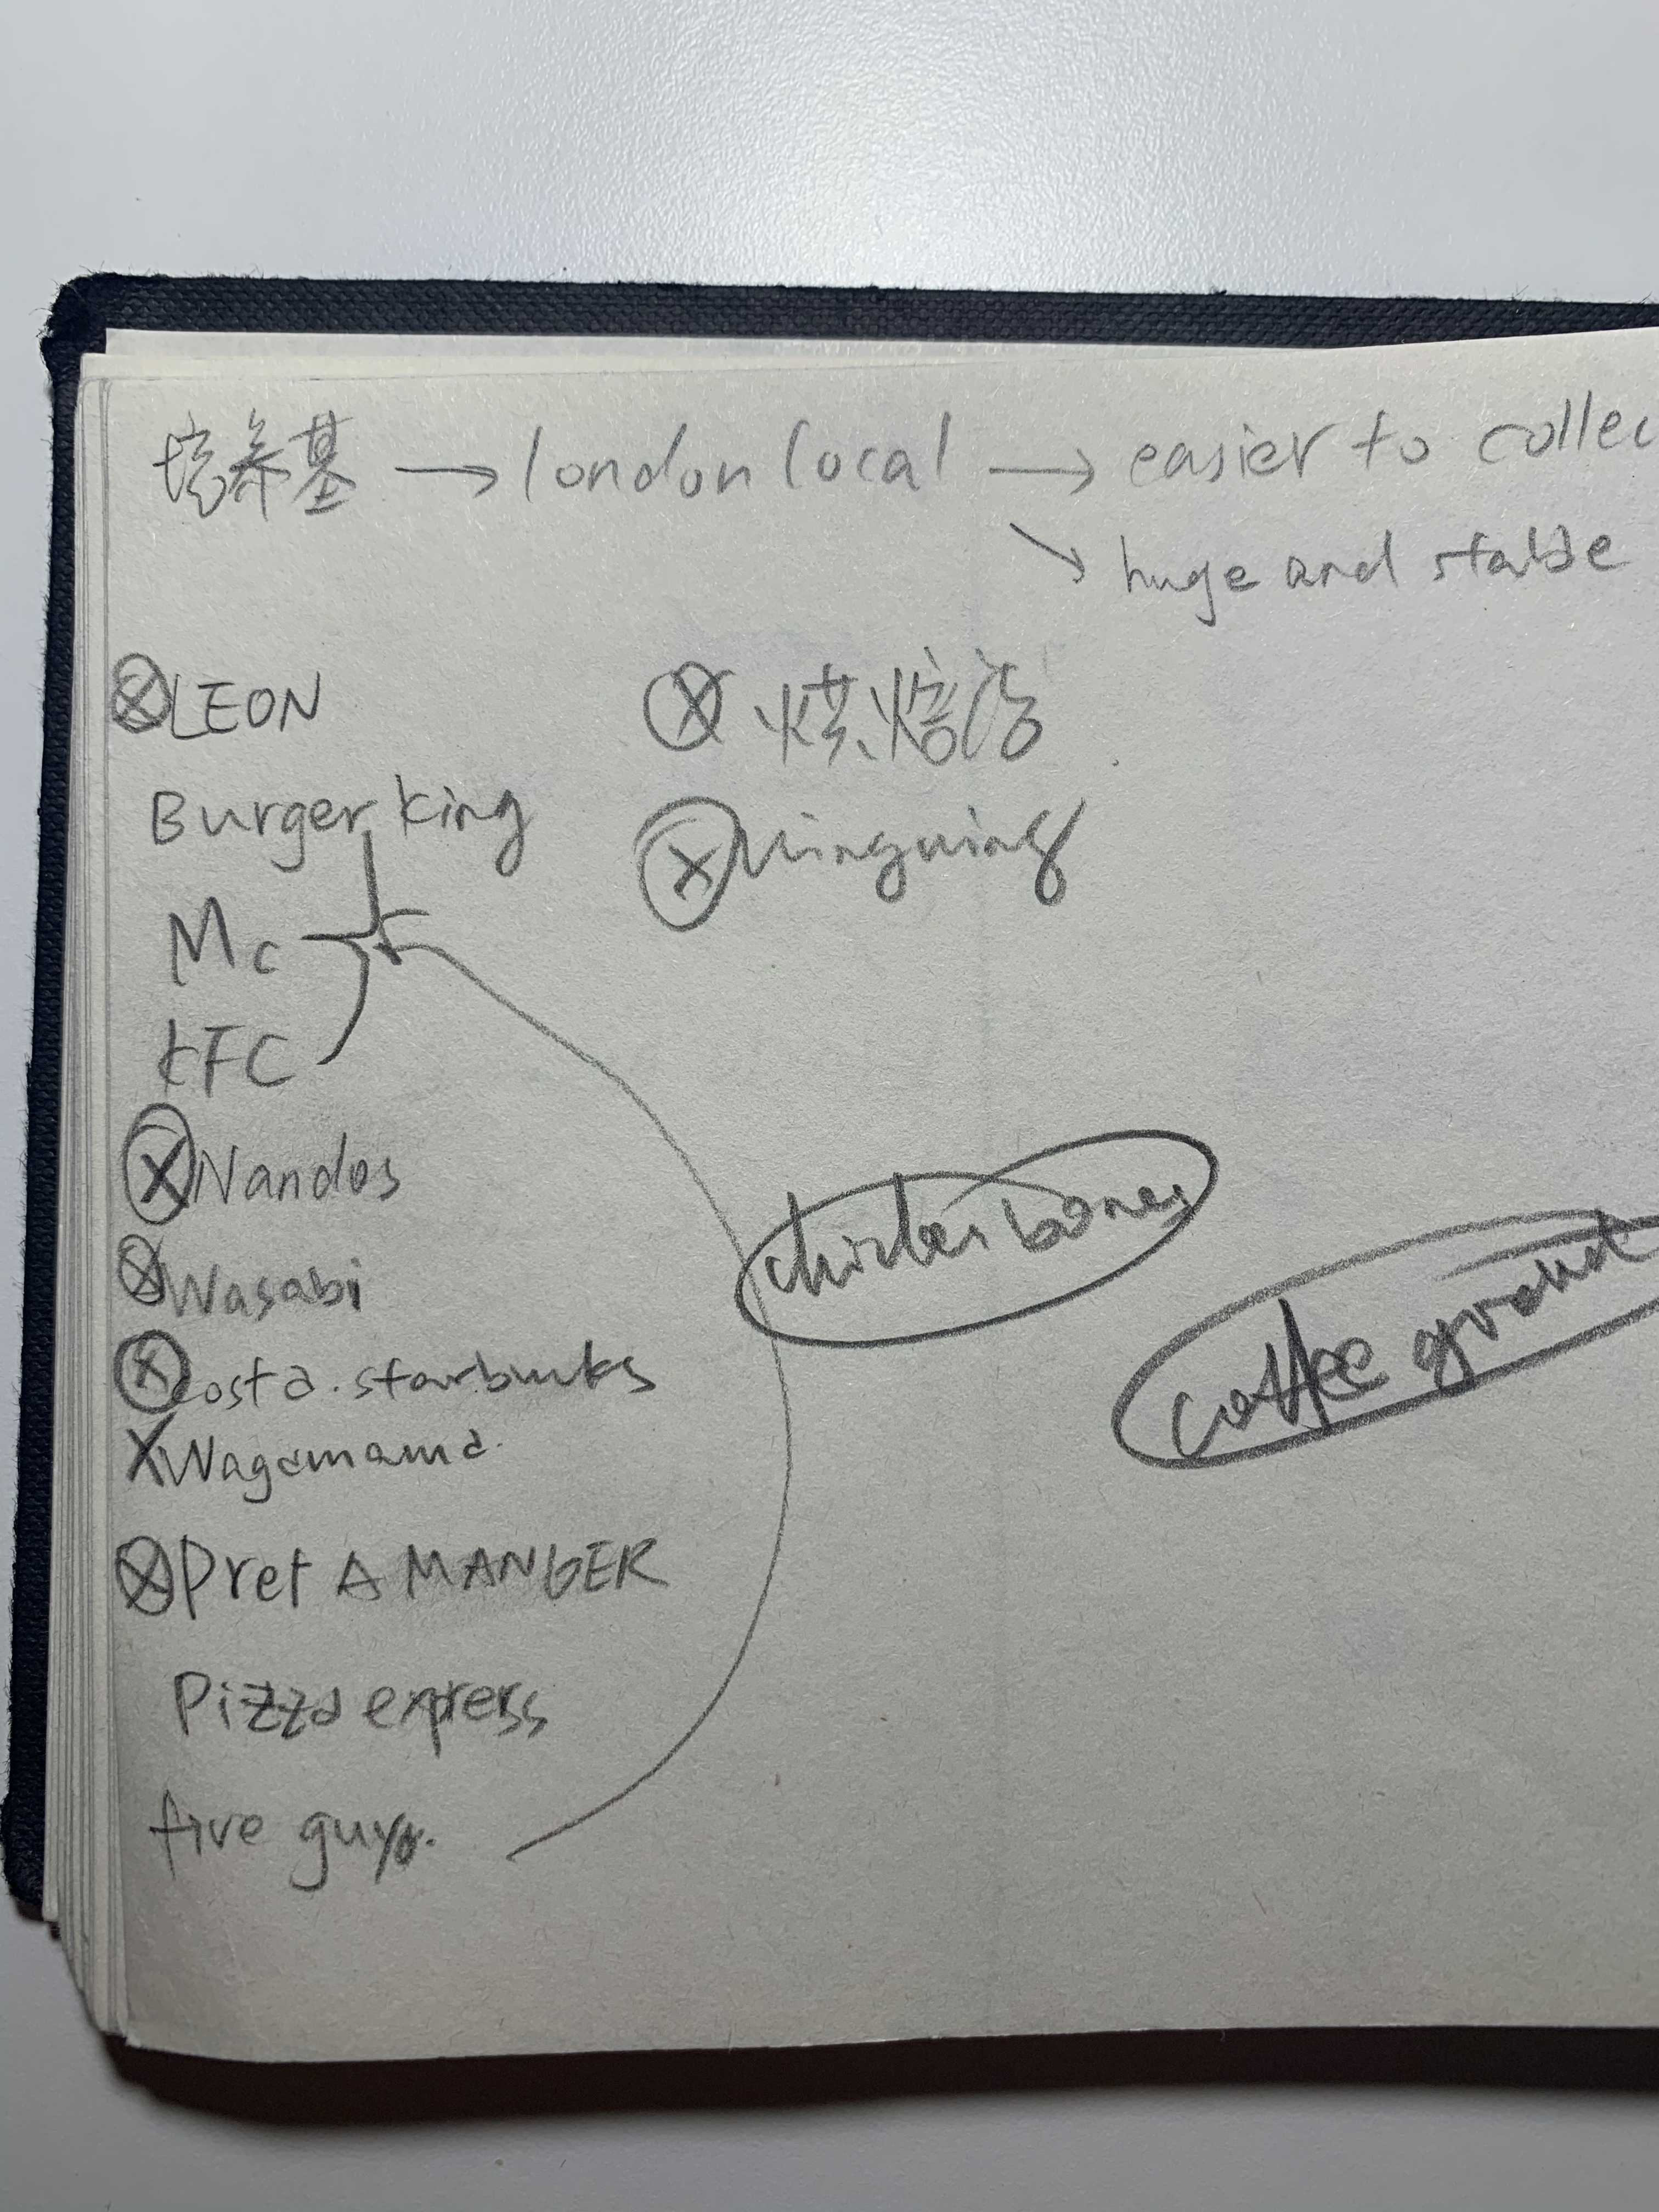 培养基 → london local → easier to collec
↘ huge and stable
LEON
烘焙店
Burger king
Wingwing
Mc
KFC
Nandos
chicken bones
Wasabi
coffee ground
costa. starbucks
Wagamama.
Pret A MANGER
Pizza express
five guys.